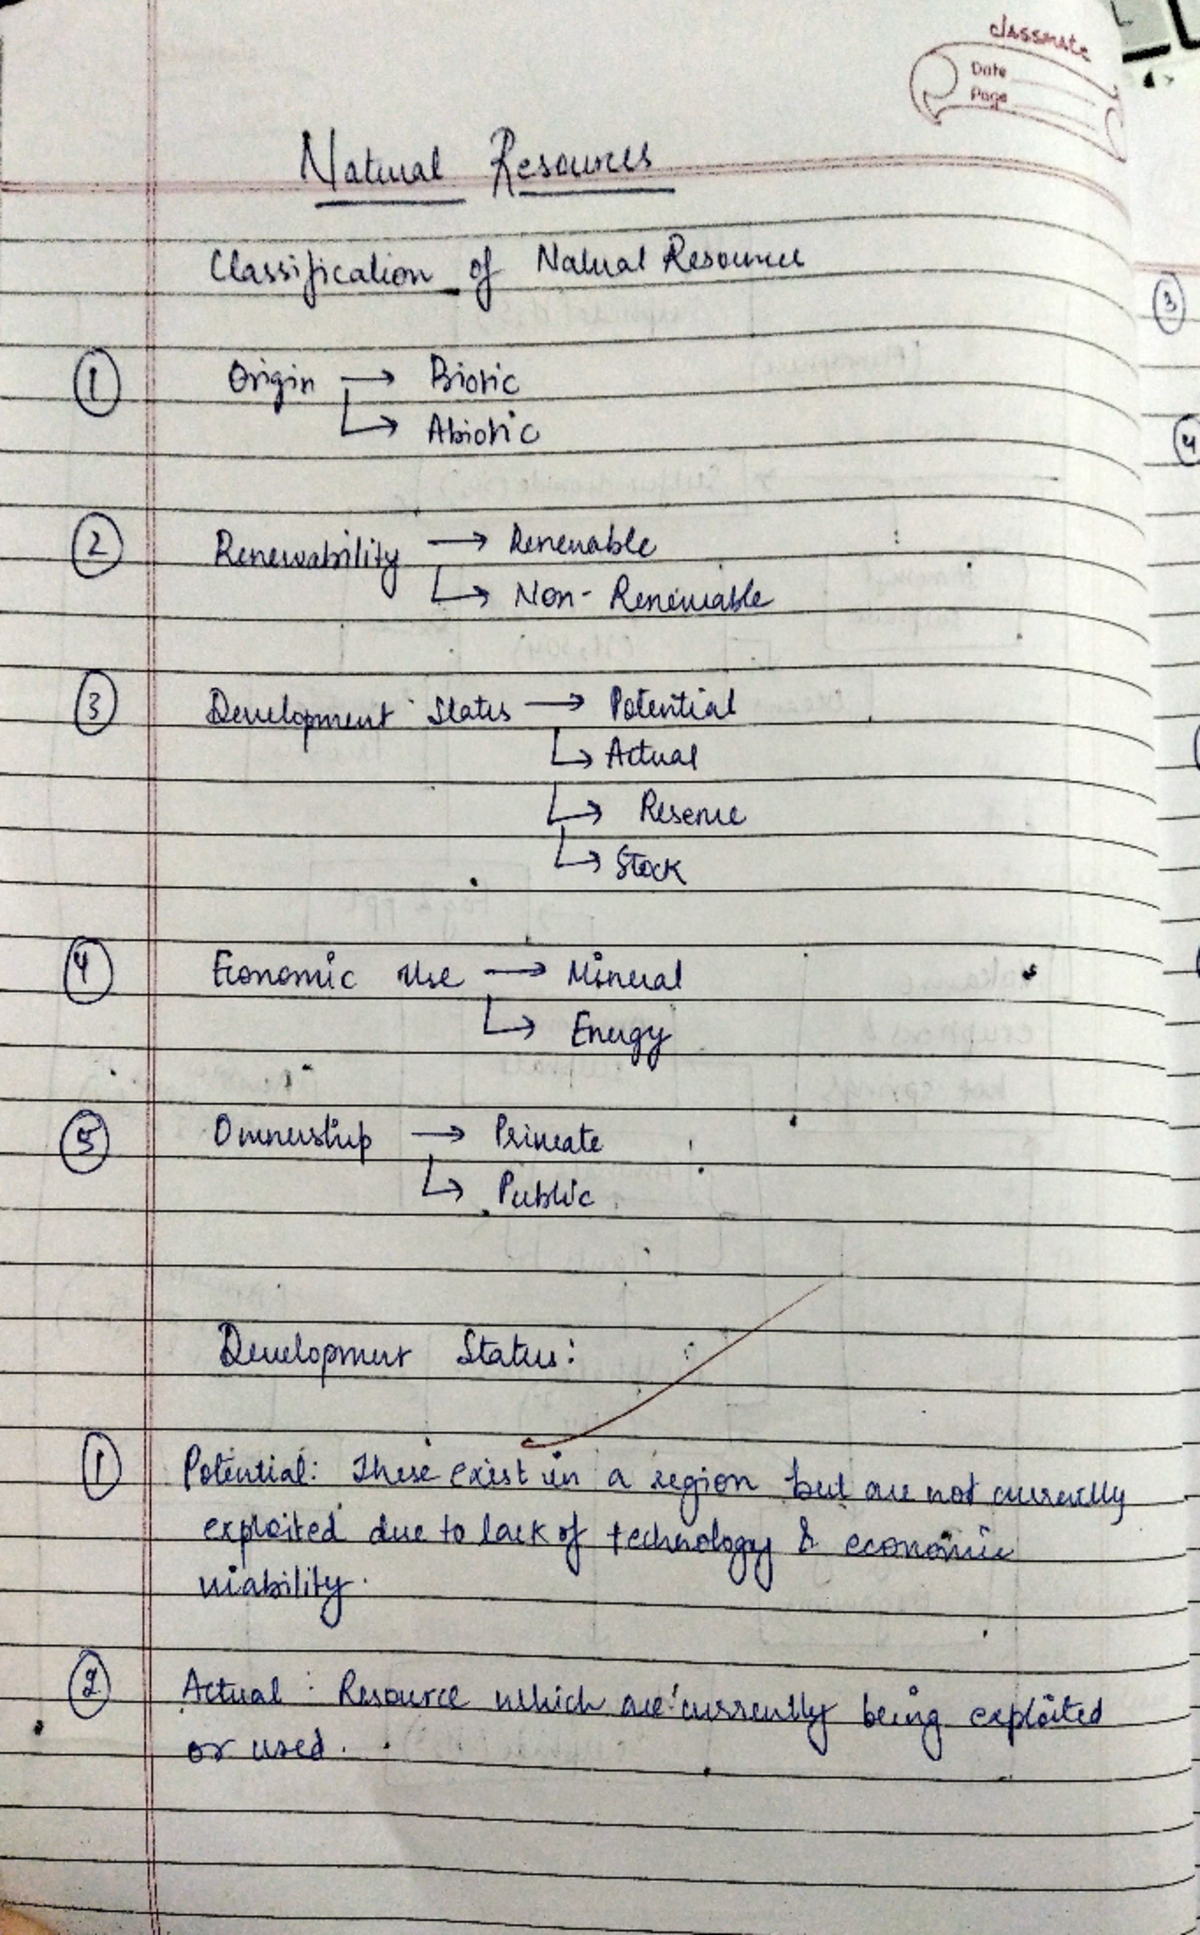 classmate
Date
Page
Natural Resources
Classification of Natural Resource
① Origin → Biotic
↳ Abiotic
② Renewability → Renewable
↳ Non-Renewable
③ Development Status → Potential
↳ Actual
↳ Reserve
↳ Stock
④ Economic Use → Mineral
↳ Energy
⑤ Ownership → Private
↳ Public
Development Status:
① Potential: These exist in a region but are not currently
exploited due to lack of technology & economic
viability.
② Actual: Resource which are currently being exploited
or used.
③
④